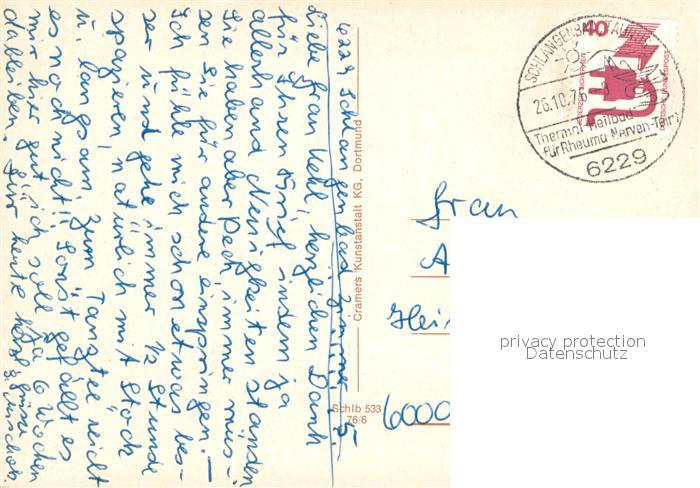 6229 Schlangenbad Zimmer 5
Liebe Frau Kehl, herzlichen Dank
für Ihren Brief indem ja
allerhand Neuigkeiten standen
Sie haben aber Pech immer müs-
sen Sie für andere einspringen. —
Ich fühle mich schon etwas bes-
ser und gehe immer ½ Stunde
spazieren, natürlich mit Stock
u. langsam, zum Tanztee reicht
es noch nicht!! Sonst gefällt es
mir hier gut, ich soll ja 6 Wochen
dableiben. Für heute herzl. Grüsse
Cramers Kunstanstalt KG, Dortmund
Schlb 533
76/6
SCHLANGENBAD TAUNUS
26.10.76
Thermal-Heilbad
für Rheuma Nerven-Ter
6229
40
DEUTSCHE BUNDESPOST
Frau
A
Hei
6000
privacy protection
Datenschutz